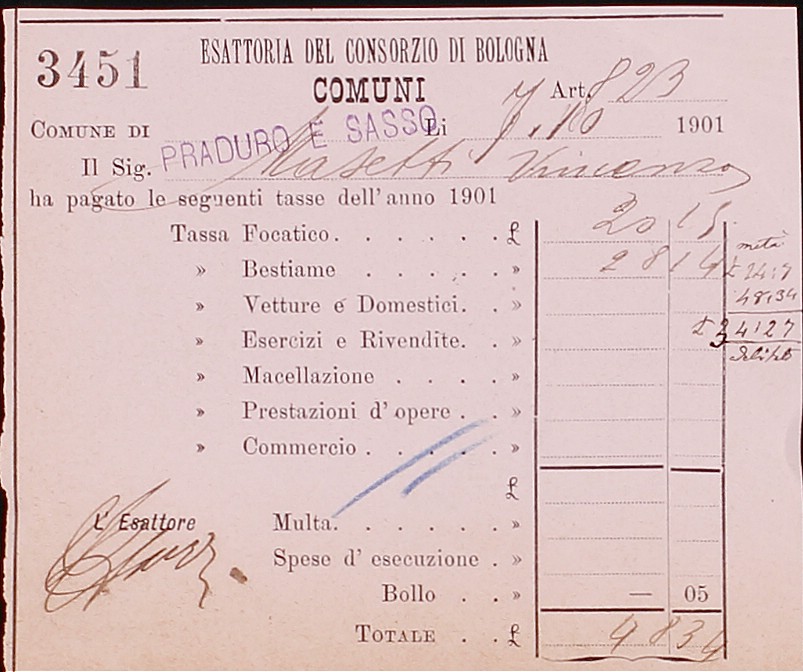 3451
ESATTORIA DEL CONSORZIO DI BOLOGNA
COMUNI
Art. 823
COMUNE DI PRADURO E SASSO Li 7.10 1901
Il Sig. Masetti Vincenzo
ha pagato le seguenti tasse dell'anno 1901
Tassa Focatico . . . . . . £ 20 15
» Bestiame . . . . . » 28 14
» Vetture e Domestici. . »
» Esercizi e Rivendite. . »
» Macellazione . . . . »
» Prestazioni d'opere . . »
» Commercio . . . . . »
metà
48,34
£
L'Esattore
Multa. . . . . . »
Spese d'esecuzione . »
Bollo . . » — 05
TOTALE . . £ 48 34